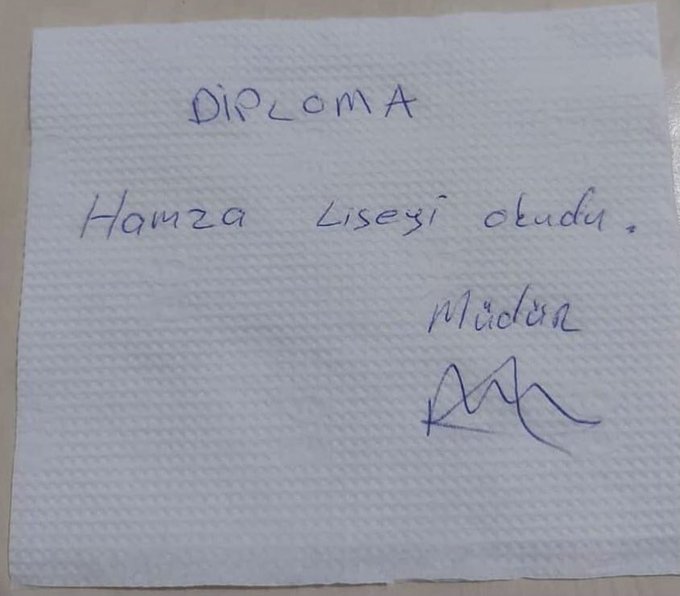 DİPLOMA
Hamza Liseyi okudu.
Müdür